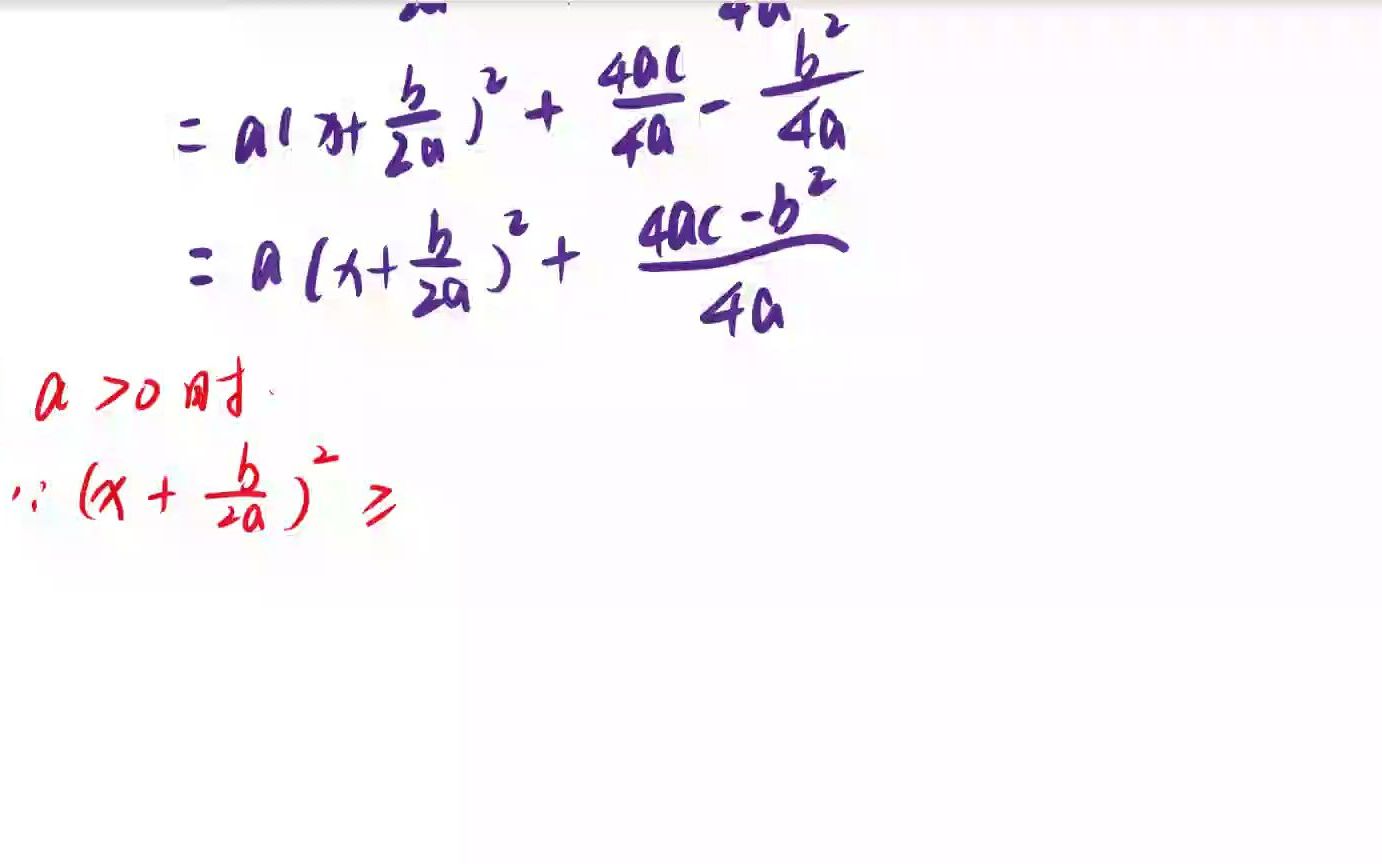 = a(x+b/2a)² + 4ac/4a - b²/4a
= a(x+b/2a)² + (4ac-b²)/4a
a>0时.
∵ (x + b/2a)² ≥